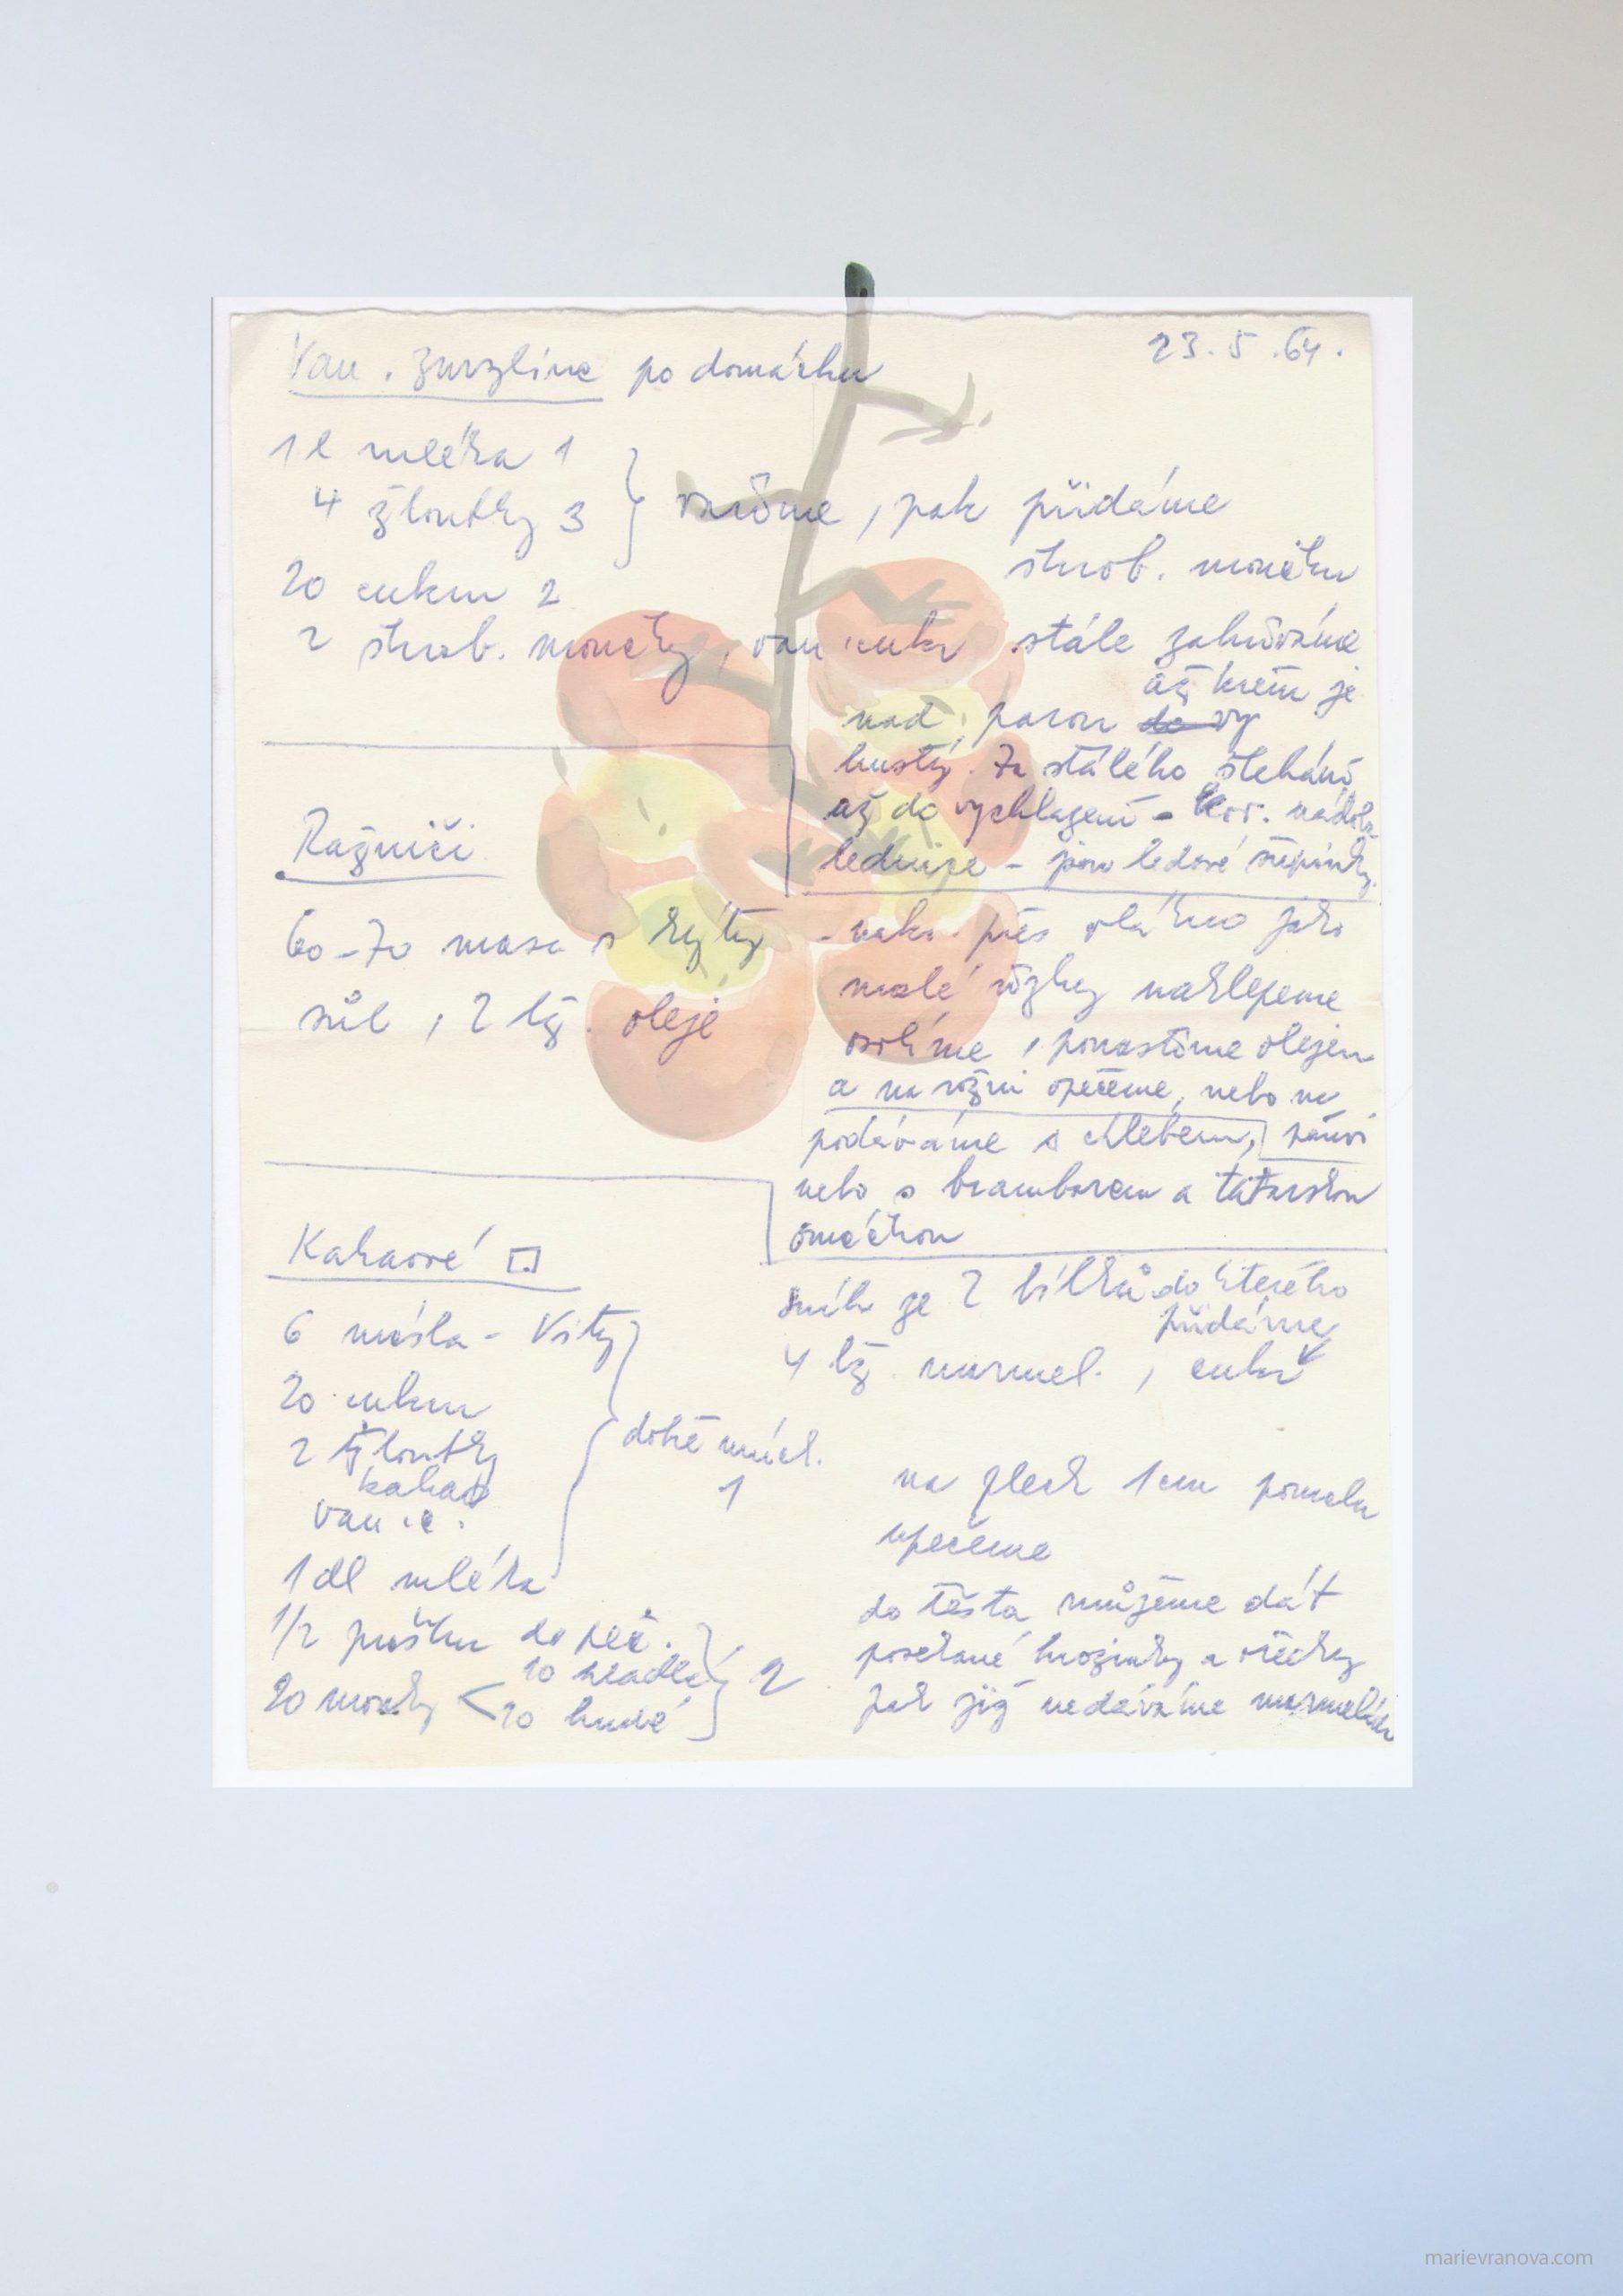 23.5.64.
Van. zmrzlina po domácku
1 l mléka 1
4 žloutky 3 } vaříme, pak přidáme
škrob. moučku
20 cukru 2
2 škrob. moučky, van. cukr
stále zahříváme
až krém je
nad parou do vy
hustý. Za stálého šlehání
až do vychlazení - kov. nádoba
lednice - jsou ledové
Ražniči
60-70 masa s kýty
sůl, 2 lž. oleje
- nakr. přes vlákno jako
malé řízky naklepeme
osolíme, pomastíme olejem
a na rožni opečeme, nebo na
podáváme s chlebem, pánvi
nebo s bramborem a tatarskou
omáčkou
Kakaové
6 másla - Vity
20 cukru
2 žloutky
kakao
van. c.
1 dl mléka
dobře mích.
1
1/2 prášku do peč.
20 mouky < 10 hladké
10 hrubé } 2
sníh ze 2 bílků do kterého
přidáme
4 lž. marmel., cukr
na plech 1 cm pomalu
upečeme
do těsta můžeme dát
posekané hrozinky a oříšky
pak již nedáváme marmeládu
marievranova.com